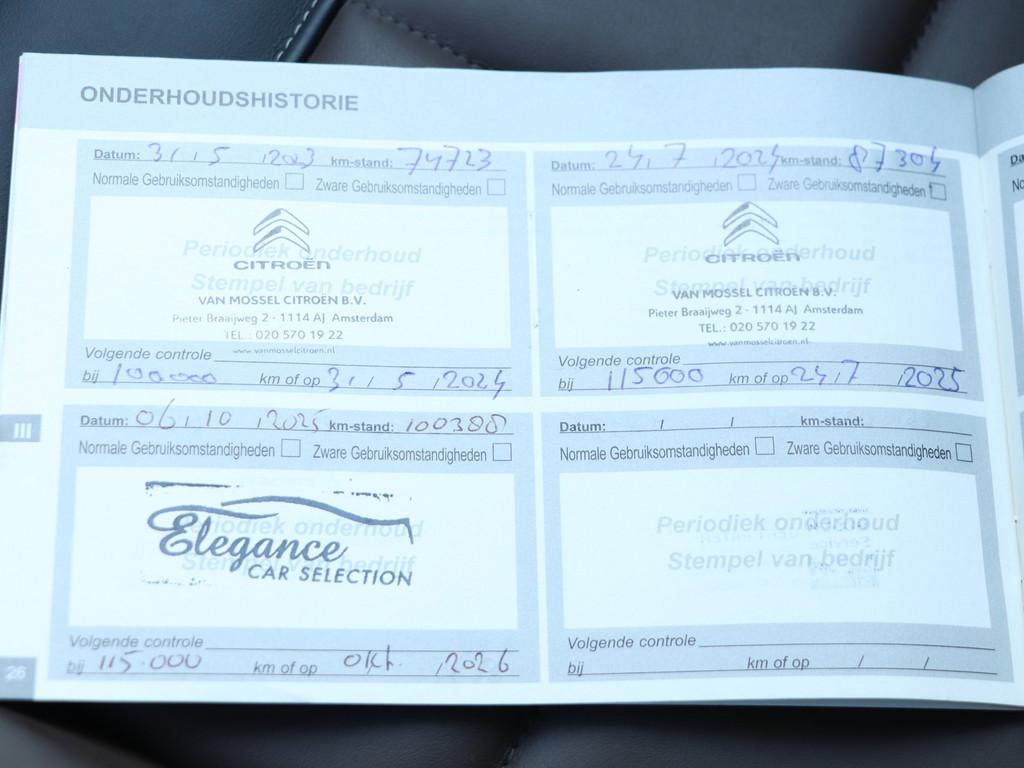 ONDERHOUDSHISTORIE
Datum: 31 / 5 / 2023 km-stand: 74723
Normale Gebruiksomstandigheden Zware Gebruiksomstandigheden
Periodiek onderhoud
CITROËN
Stempel van bedrijf
VAN MOSSEL CITROËN B.V.
Pieter Braaijweg 2 - 1114 AJ Amsterdam
TEL.: 020 570 19 22
www.vanmosselcitroen.nl
Volgende controle
bij 100000 km of op 31 / 5 / 2024
Datum: 24 / 7 / 2024 km-stand: 87304
Normale Gebruiksomstandigheden Zware Gebruiksomstandigheden
Periodiek onderhoud
CITROËN
Stempel van bedrijf
VAN MOSSEL CITROËN B.V.
Pieter Braaijweg 2 - 1114 AJ Amsterdam
TEL.: 020 570 19 22
www.vanmosselcitroen.nl
Volgende controle
bij 115000 km of op 24 / 7 / 2025
III
Datum: 06 / 10 / 2025 km-stand: 100388
Normale Gebruiksomstandigheden Zware Gebruiksomstandigheden
Periodiek onderhoud
Elegance
Stempel van bedrijf
CAR SELECTION
Volgende controle
bij 115.000 km of op okt. / 2026
Datum: / / km-stand:
Normale Gebruiksomstandigheden Zware Gebruiksomstandigheden
Periodiek onderhoud
Stempel van bedrijf
Volgende controle
bij km of op / /
26